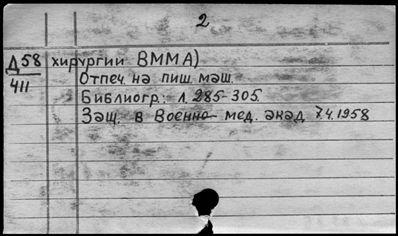 2
Д58 хирургии ВММА)
411 Отпеч. на пиш. маш.
Библиогр.: л. 285-305.
Защ. в Военно-мед. акад. 7.4.1958